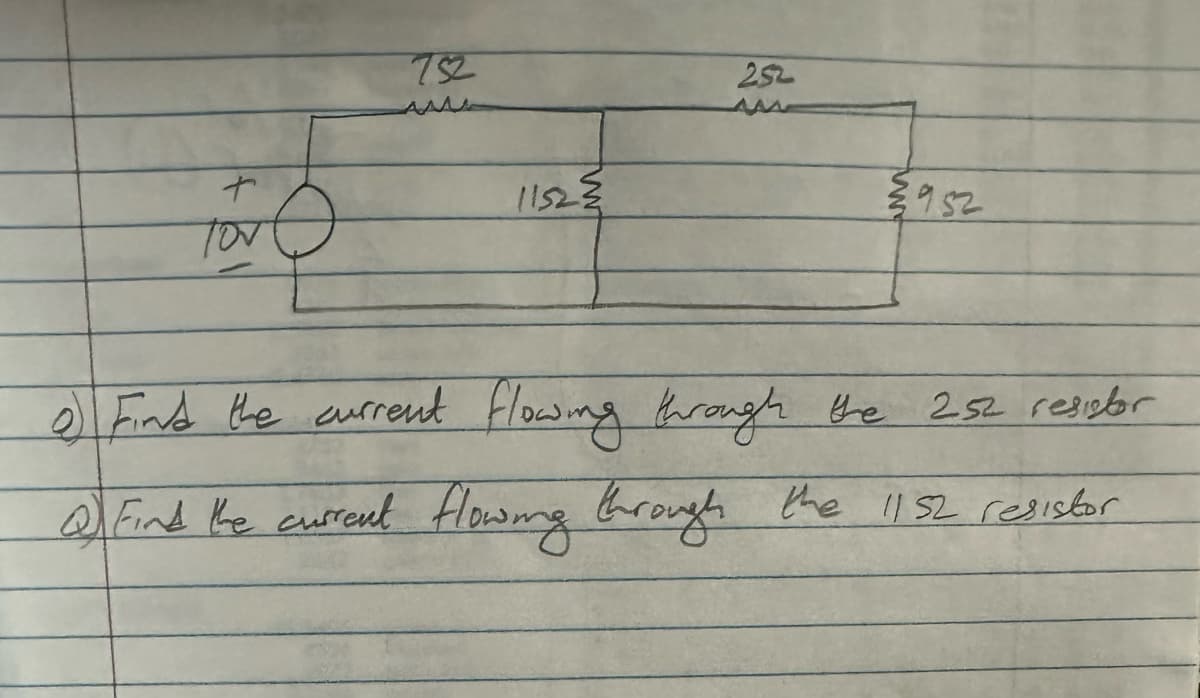 7Ω 2Ω
+ 11Ω 9Ω
10V
-
Q) Find the current flowing through the 2Ω resistor
Q) Find the current flowing through the 11Ω resistor